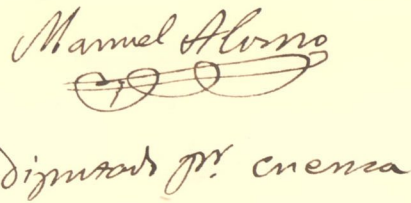 Manuel Alonso
Diputado pr. Cuenca